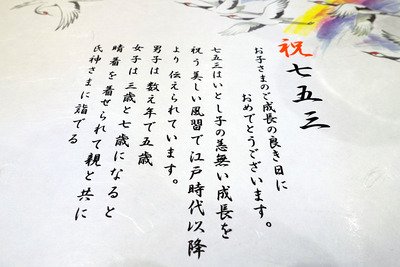 祝七五三
お子さまのご成長の良き日に
おめでとうございます。
七五三はいとし子の恙無い成長を
祝う美しい風習で江戸時代以降
より伝えられています。
男子は数え年で五歳
女子は三歳と七歳になると
晴着を着せられて親と共に
氏神さまに詣でる